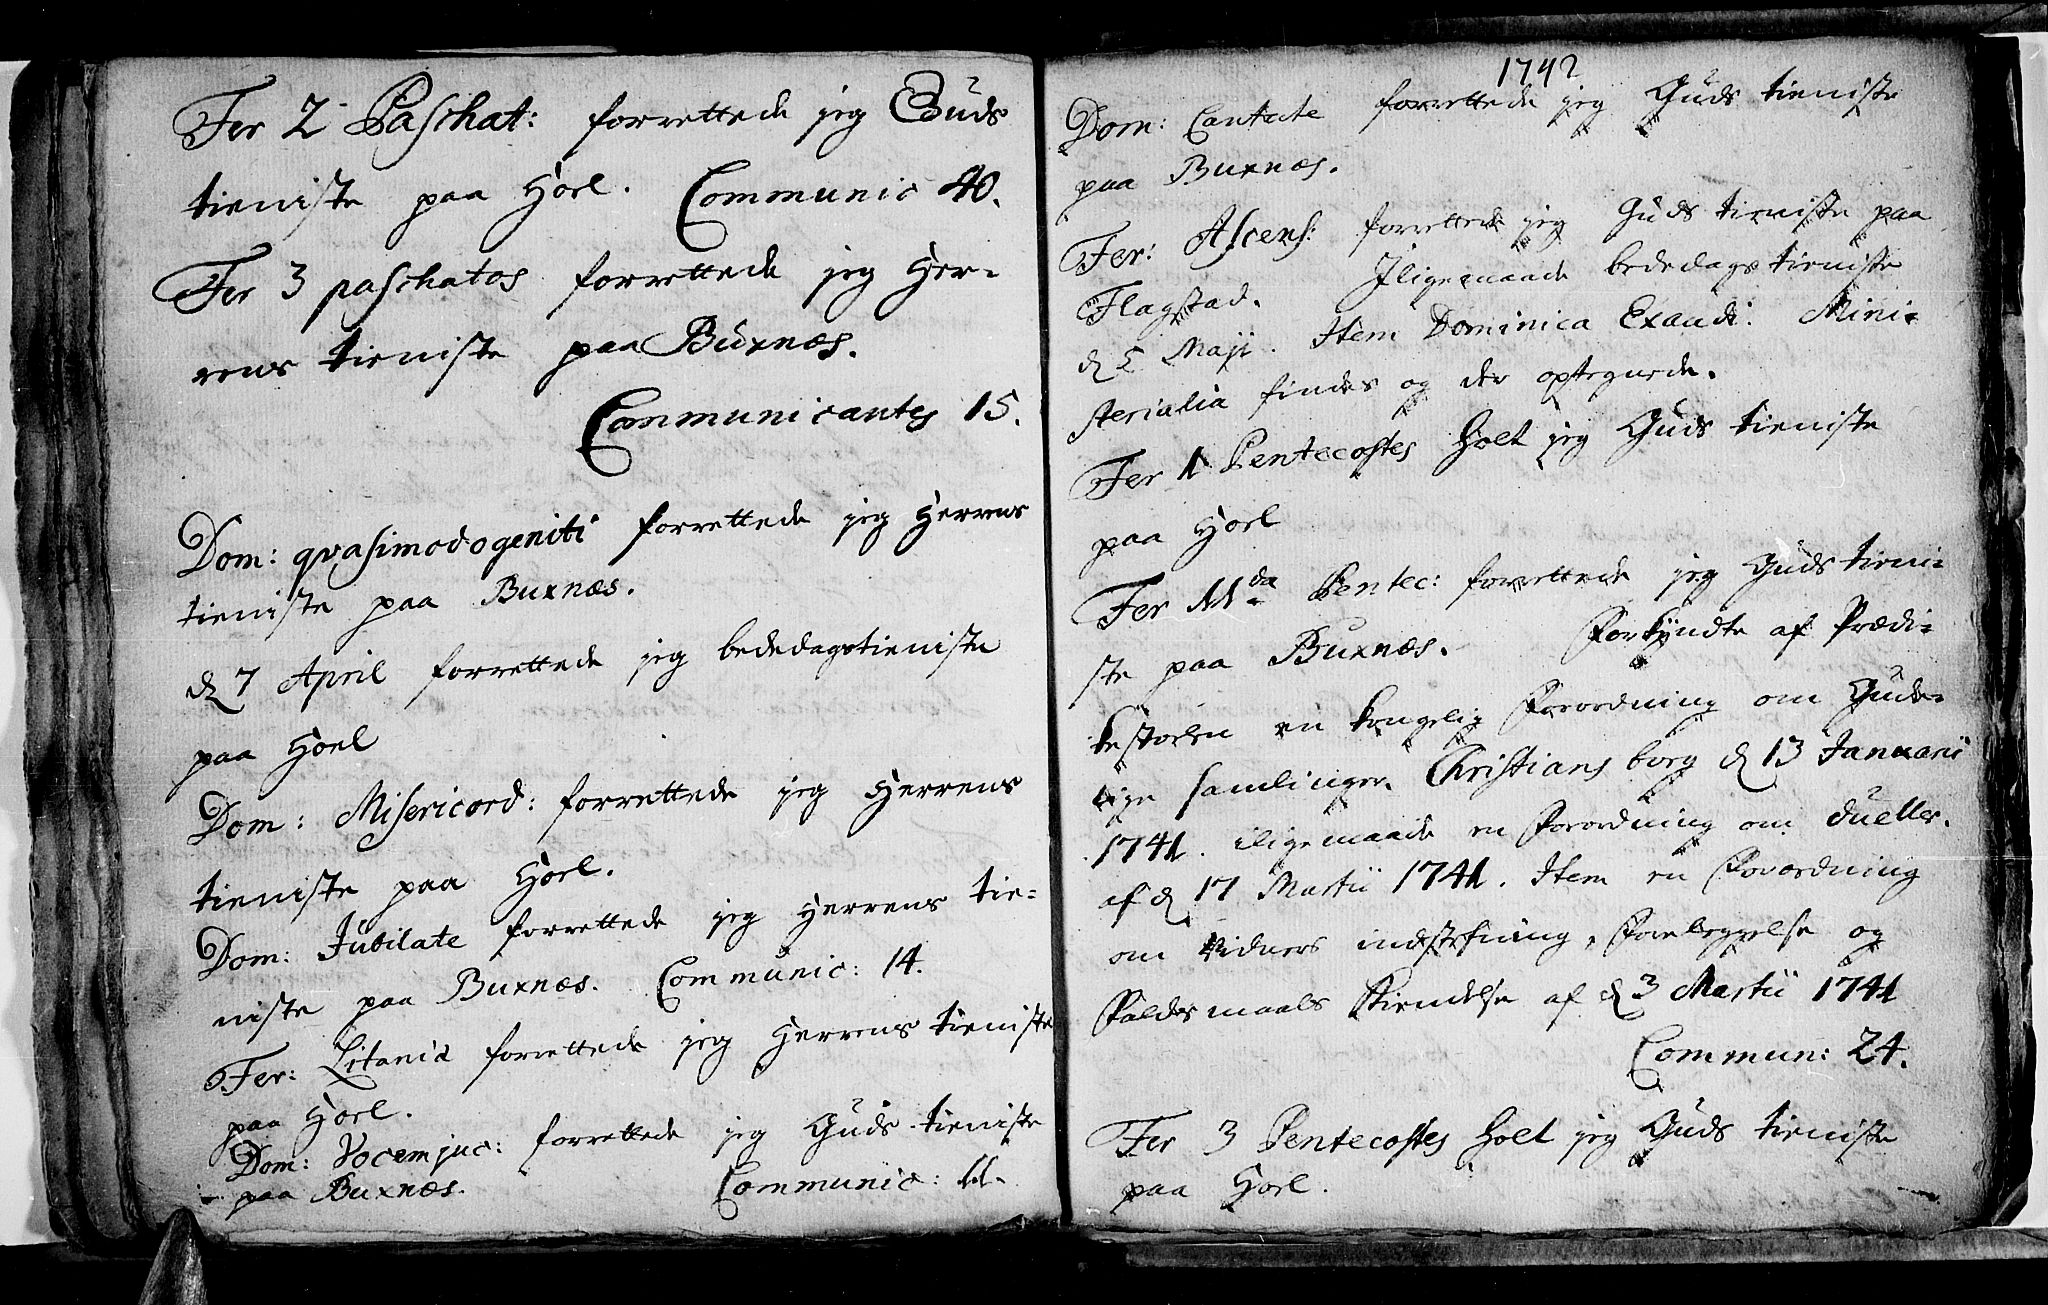 Fer 2 Paschat: forrettede jeg Guds
tieniste paa Hoel. Communic 40.
Fer 3 paschatos forrettede jeg Her-
rens tieniste paa Buxnæs.
Communicantes 15.
Dom: qvasimodogeniti forrettede jeg Herrens
tieniste paa Buxnæs.
d 7 April forrettede jeg bededagstieniste
paa Hoel
Dom: Misericord: forrettede jeg Herrens
tieniste paa Hoel.
Dom: Jubilate forrettede jeg Herrens tie-
niste paa Buxnæs. Communic: 14.
Fer: Litania forrettede jeg Herrens tieniste
paa Hoel.
Dom: Vocem juc: forrettede jeg Guds tieniste
paa Buxnæs. Communic: 11.
1742
Dom: Cantate forrettede jeg Guds tieniste
paa Buxnæs.
Fer: Ascens: forrettede jeg Guds tieniste paa
Flagstad. Iligemaade bededags tieniste
d 5 Maji. Item Dominica Exaudi. Mini-
sterialia findes og der optegnede.
Fer 1 Pentecostes holt jeg Guds tieniste
paa Hoel
Fer 11da Pentec: forrettede jeg Guds tieni-
ste paa Buxnæs. Forkyndte af Prædi-
kestolen en kongelig Forordning om Gude-
lige samlinger. Christiansborg d 13 Januarii
1741. iligemaade en Forordning om dueller.
af d 17 Martii 1741. Item en Forordning
om Vidners indstefning, Forelæggelse og
Faldsmaals Kiendelse af d 3 Martii 1741
Commun: 24.
Fer 3 Pentecostes holt jeg Guds tieniste
paa Hoel.